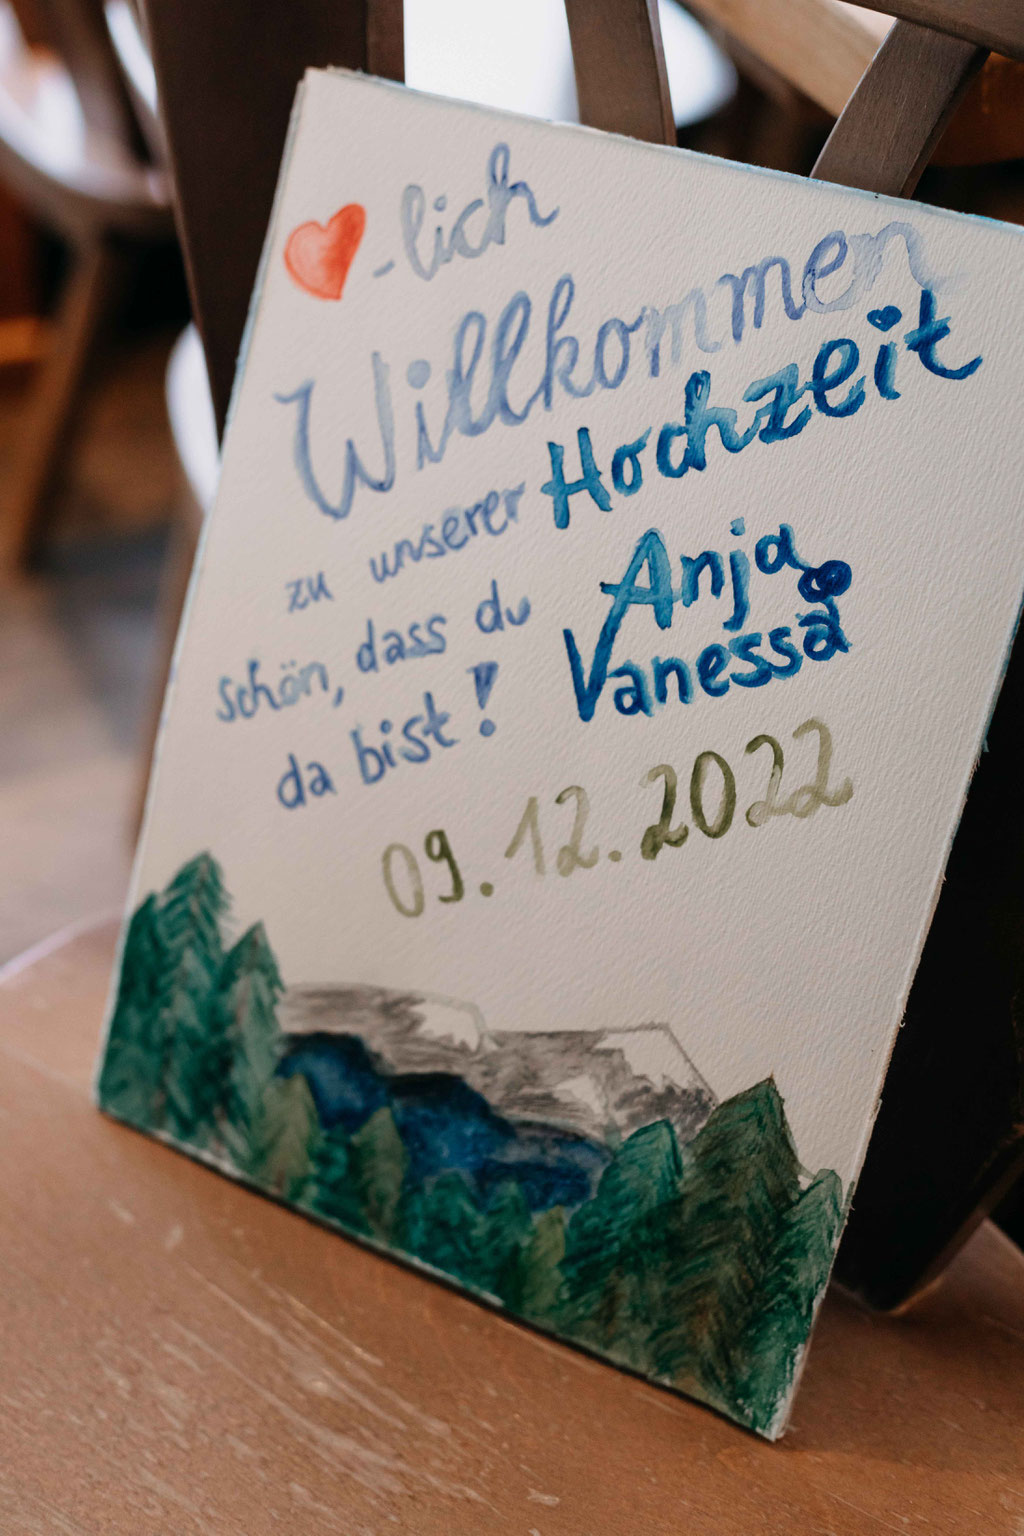 ❤-lich
Willkommen
zu unserer Hochzeit
schön, dass du
da bist!
Anja &
Vanessa
09.12.2022